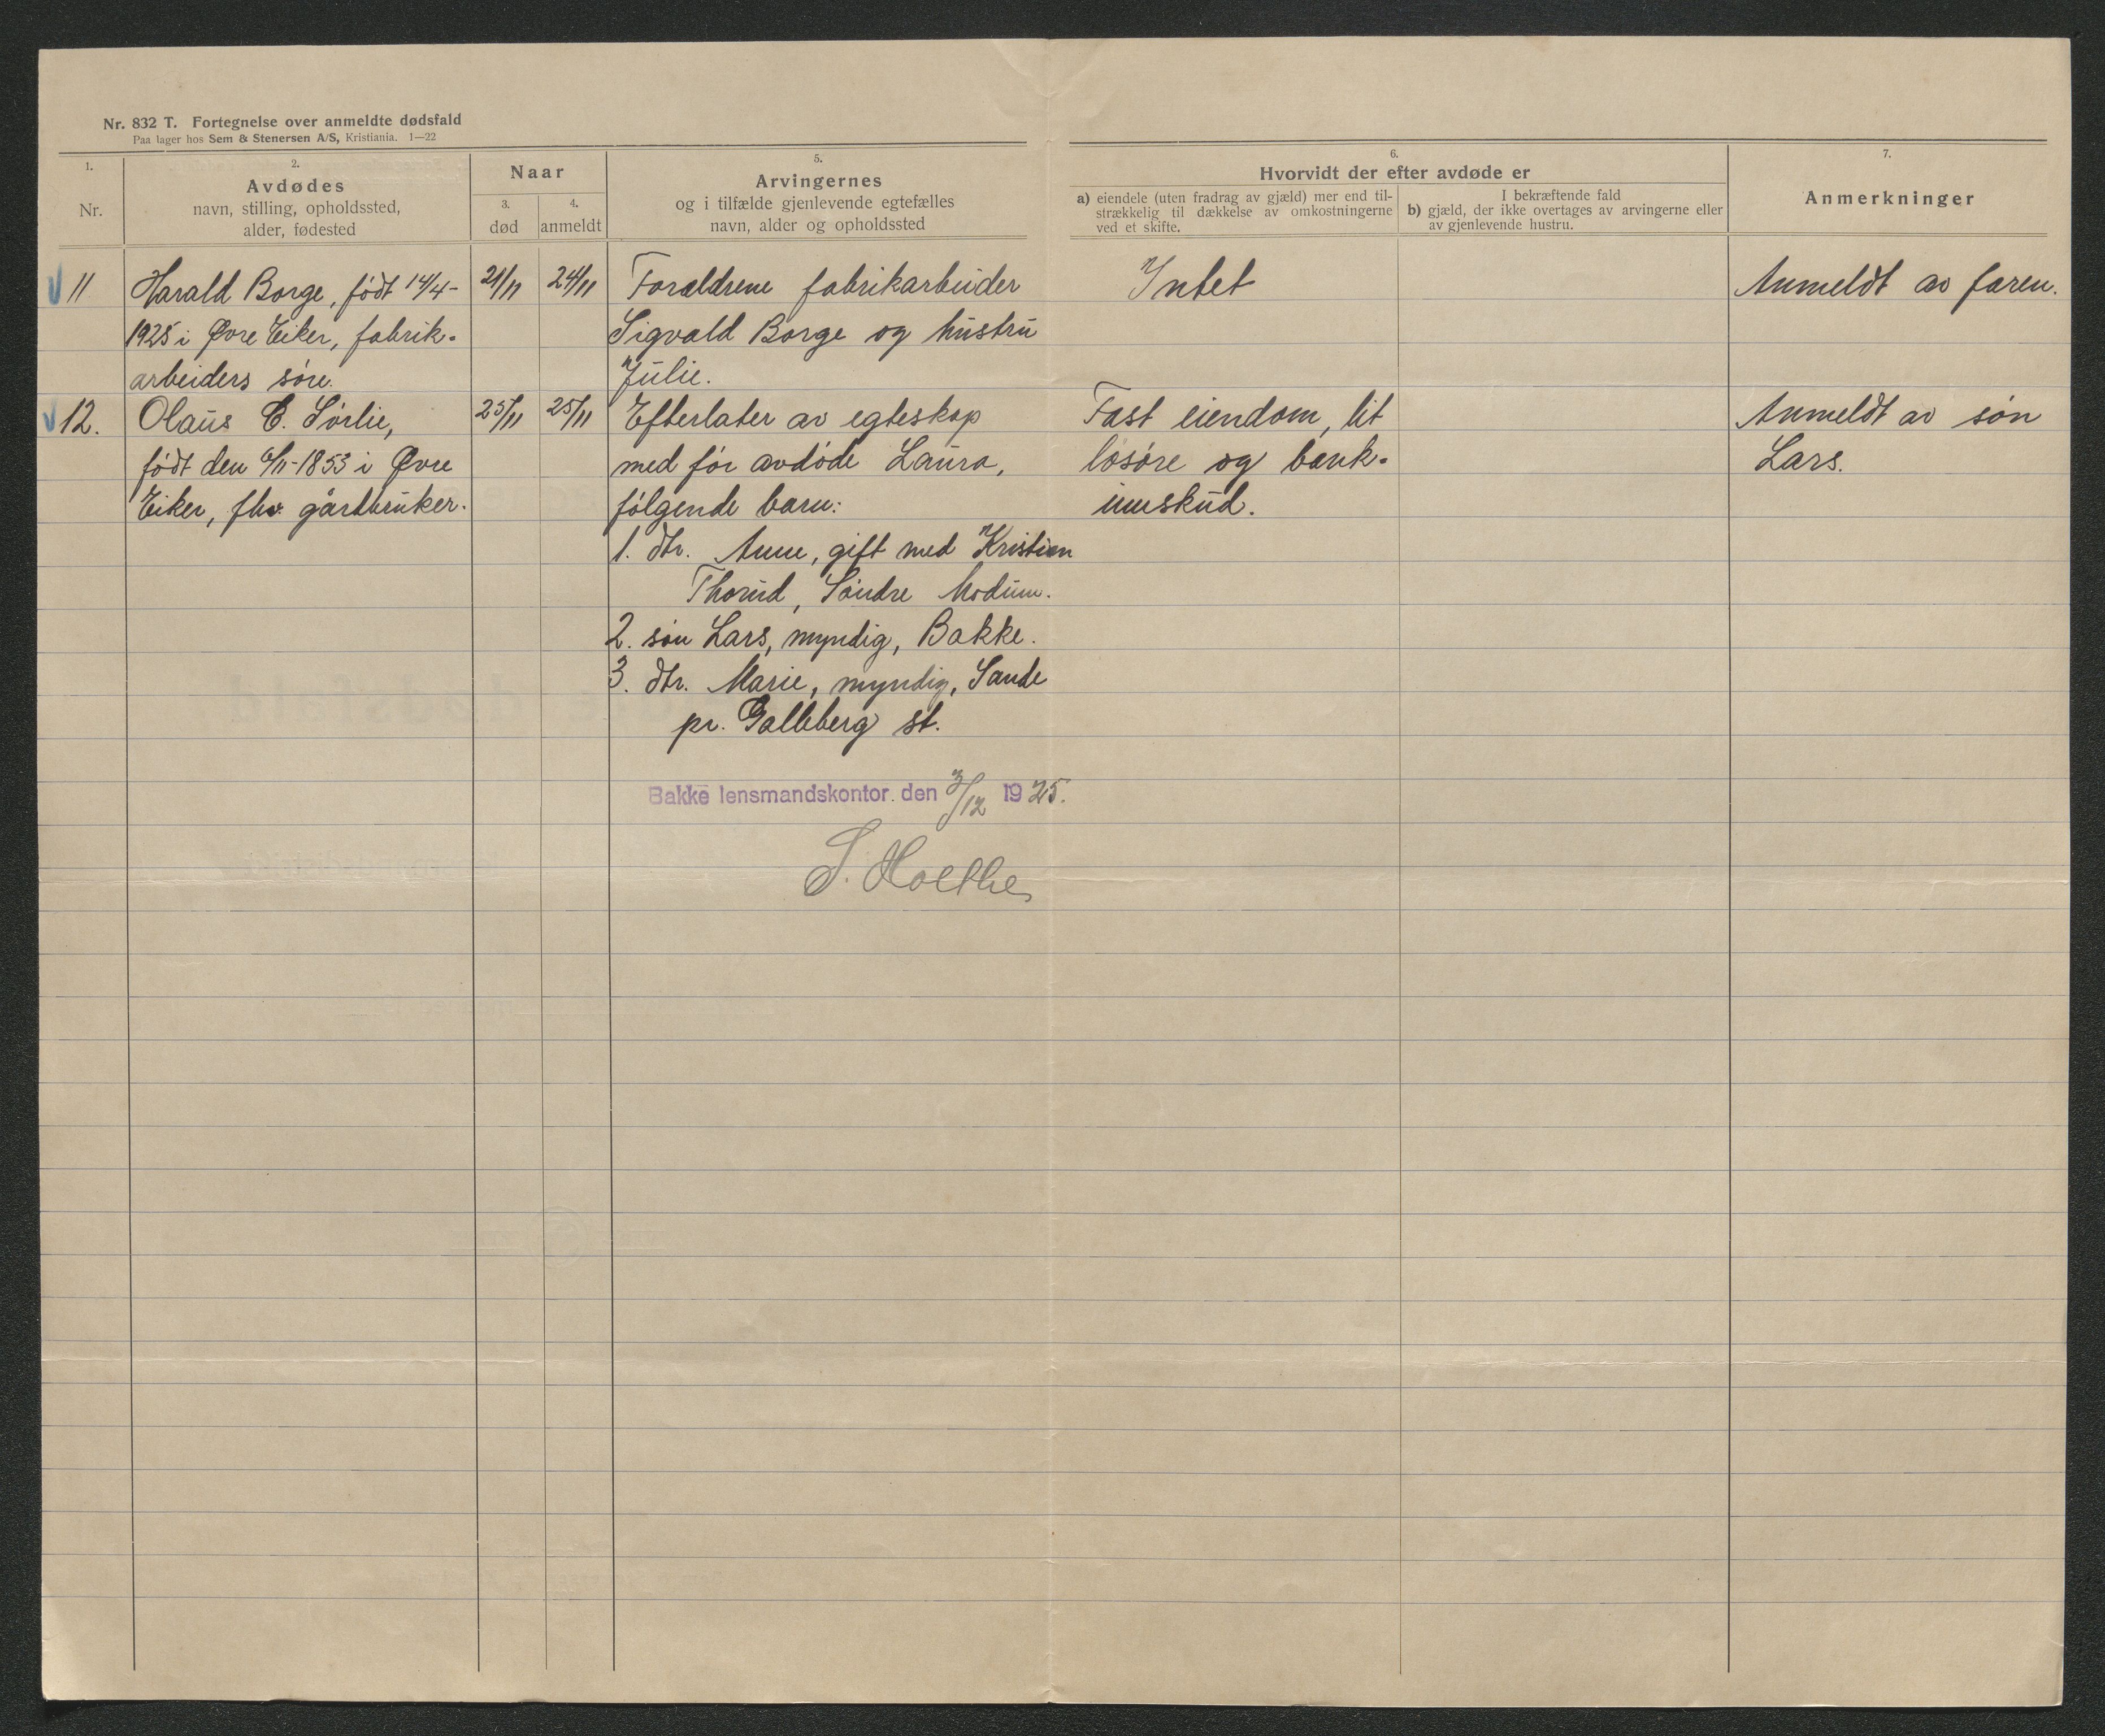 Nr. 832 T. Fortegnelse over anmeldte dødsfald
Paa lager hos Sem & Stenersen A/S, Kristiania. 1—22
1.
Nr.
2.
Avdødes
navn, stilling, opholdssted,
alder, fødested
Naar
3.
død
4.
anmeldt
5.
Arvingernes
og i tilfælde gjenlevende egtefælles
navn, alder og opholdssted
6.
Hvorvidt der efter avdøde er
a) eiendele (uten fradrag av gjæld) mer end til-
strækkelig til dækkelse av omkostningerne
ved et skifte.
I bekræftende fald
b) gjæld, der ikke overtages av arvingerne eller
av gjenlevende hustru.
7.
Anmerkninger
11
Harald Borge, født 14/4-
1925 i Øvre Eiker, fabrik-
arbeiders søn.
21/11
24/11
Forældrene fabrikarbeider
Sigvald Borge og hustru
Julie.
Intet
Anmeldt av faren.
12.
Olaus E. Sørlie,
født den /11-1853 i Øvre
Eiker, fhv. gårdbruker.
25/11
25/11
Efterlater av egteskap
med før avdøde Laura,
følgende barn:
1. dtr. Anne, gift med Kristian
Thorud, Søndre Modum.
2. søn Lars, myndig, Bakke.
3. dtr. Marie, myndig, Sande
pr. Galleberg st.
Fast eiendom, lit
løsøre og bank-
innskud.
Anmeldt av søn
Lars.
Bakke lensmandskontor. den 3/12 1925.
S.